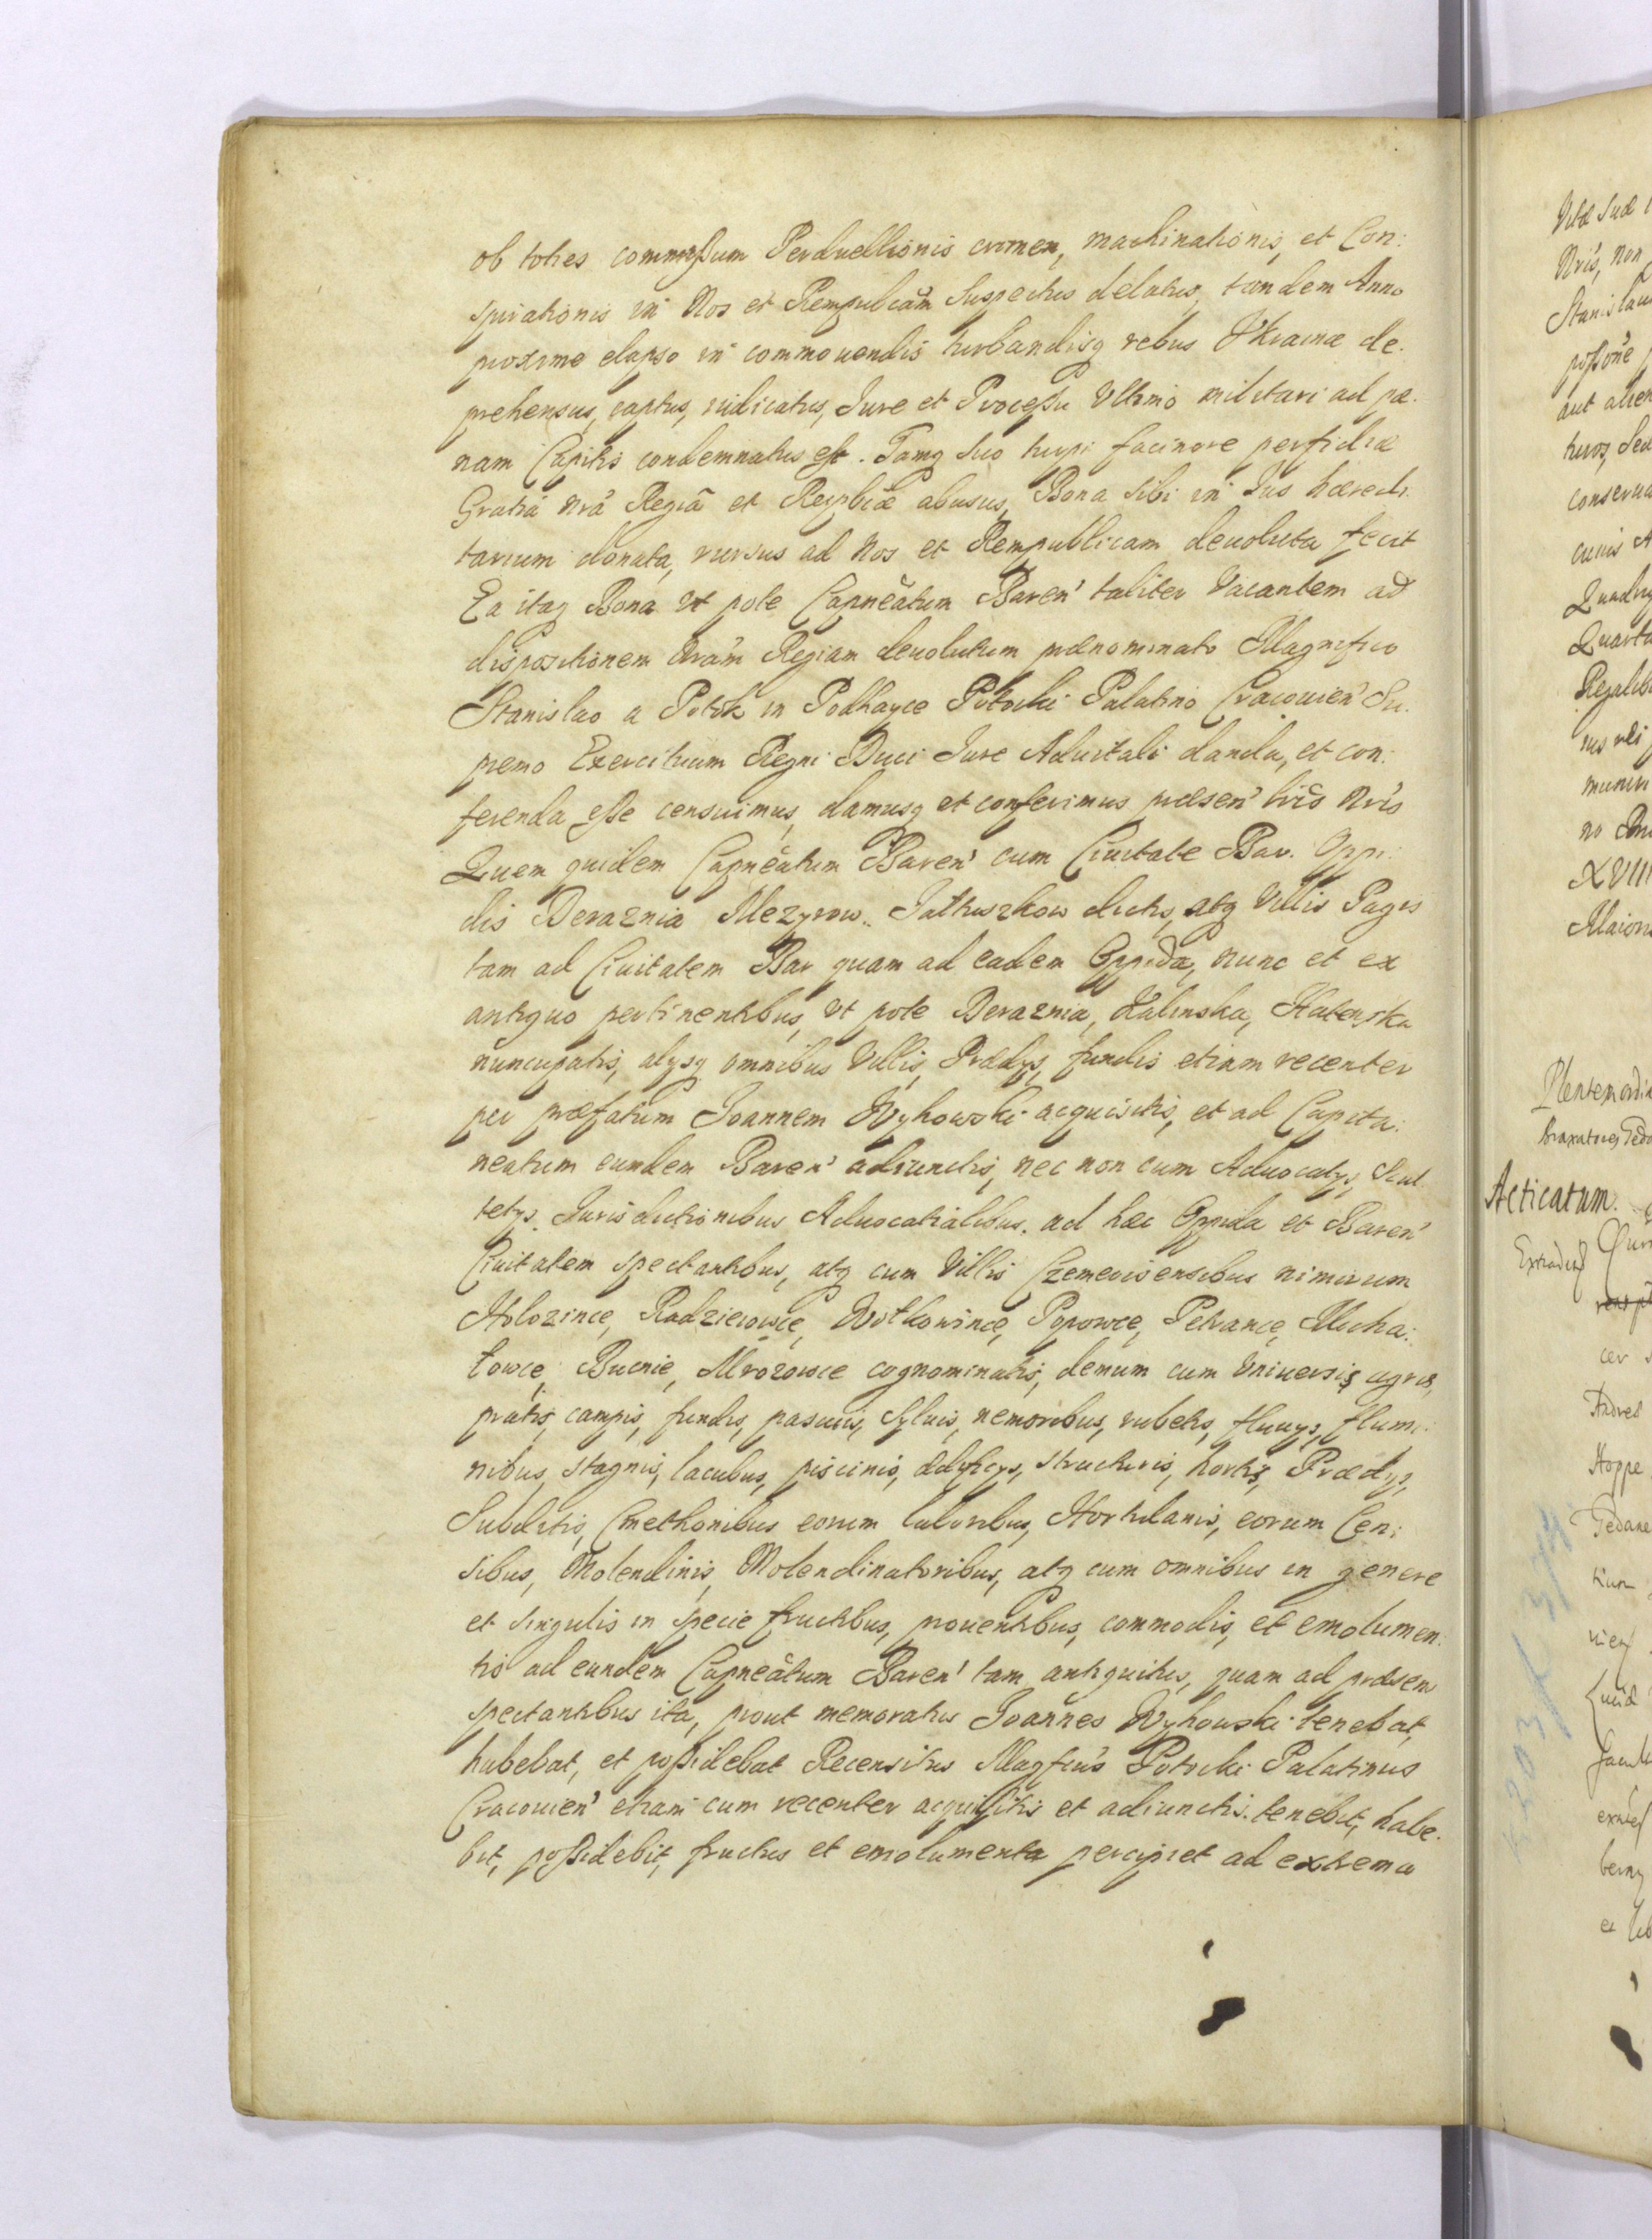 ob toties commissum Perduellionis crimen, machinationis, et Con:
spirationis in Nos et Rempubcam Suspectus delatus, tandem Anno
proxime elapso in commouendis turbandisq rebus Vkrainæ de.
prehensus, captus, iudicatus, Jure et Processu Vltimo militari ad pæ.
nam Capitis condemnatus est. Tamq suo turpi facinore perfidiæ
Gratia nrã Regiã et Reipbcæ abusus, Bona sibi in Jus hæredi.
tarium donata, rursus ad Nos et Rempublicam deuoluta fecit
Ea itaq Bona Vt pote Capneatum Baren' taliter Vacantem ad
dispositionem Nram Regiam deuolutum prænominato Magnifico
Stanislao a Potok in Podhayce Potocki Palatino Cracouien' Su.
premo Exercituum Regni Duci Jure Aduitali danda, et con:
ferenda esse censuimus, damusq et conferimus præsen' lris Nris
Quem quidem Capneatum Baren' cum Ciuitate Bar. Oppi:
dis Deraznia Mezyrow. Jaltuszkow dictis, atq Villis Pagis
tam ad Ciuitatem Bar quam ad eadem Oppida, nunc et ex
antiquo pertinentibus, Vt pote Deraznia, Kalinska, Halenska
nuncupatis, alysq omnibus Villis, Prædys, fundis etiam recenter
per præfatum Joannem Wyhowski acquisitis, et ad Capita:
neatum eundem Baren' adiunctis, nec non cum Aduocatys, Scul
tetys. Jurisdictionibus Aduocatialibus. ad hæc Oppida et Baren'
Ciuitatem spectantibus, atq cum Villis Czemerisensibus nimirum
Holozince, Radzieiowce, Wołkowince, Popowce, Petrance, Micha:
łowce, Bucnie, Mrozowce cognominatis, demum cum Vniuersis agris,
pratis, campis, fundis, pascuis, Syluis, nemoribus, rubetis, fluuys, flumi:
nibus, stagnis, lacubus, piscinis, ædificys, structuris, hortis, Prædys,
Subditis, Cmethonibus eorum laboribus, Hortulanis, eorum Cen:
sibus, Molendinis, Molendinatoribus, atq cum omnibus in genere
et singulis in specie fructibus, prouentibus, commodis, et emolumen:
tis ad eundem Capneatum Baren' tam antiquitus, quam ad præsens
spectantibus ita, prout memoratus Joannes Wyhowski tenebat,
habebat, et possidebat Recensitus Magfcus Potocki Palatinus
Cracouien' etiam cum recenter acquisitis et adiunctis. tenebit, habe.
bit, possidebit, fructus et emolumenta percipiet ad extrema
Vitæ suæ
Nris, non
Stanislau
aut alien
turos, Sed
conserua
cuius
Quarta
Regalib
no
XVIII
Maioris
Acticatum.
Andrea
Hoppe
Gedane